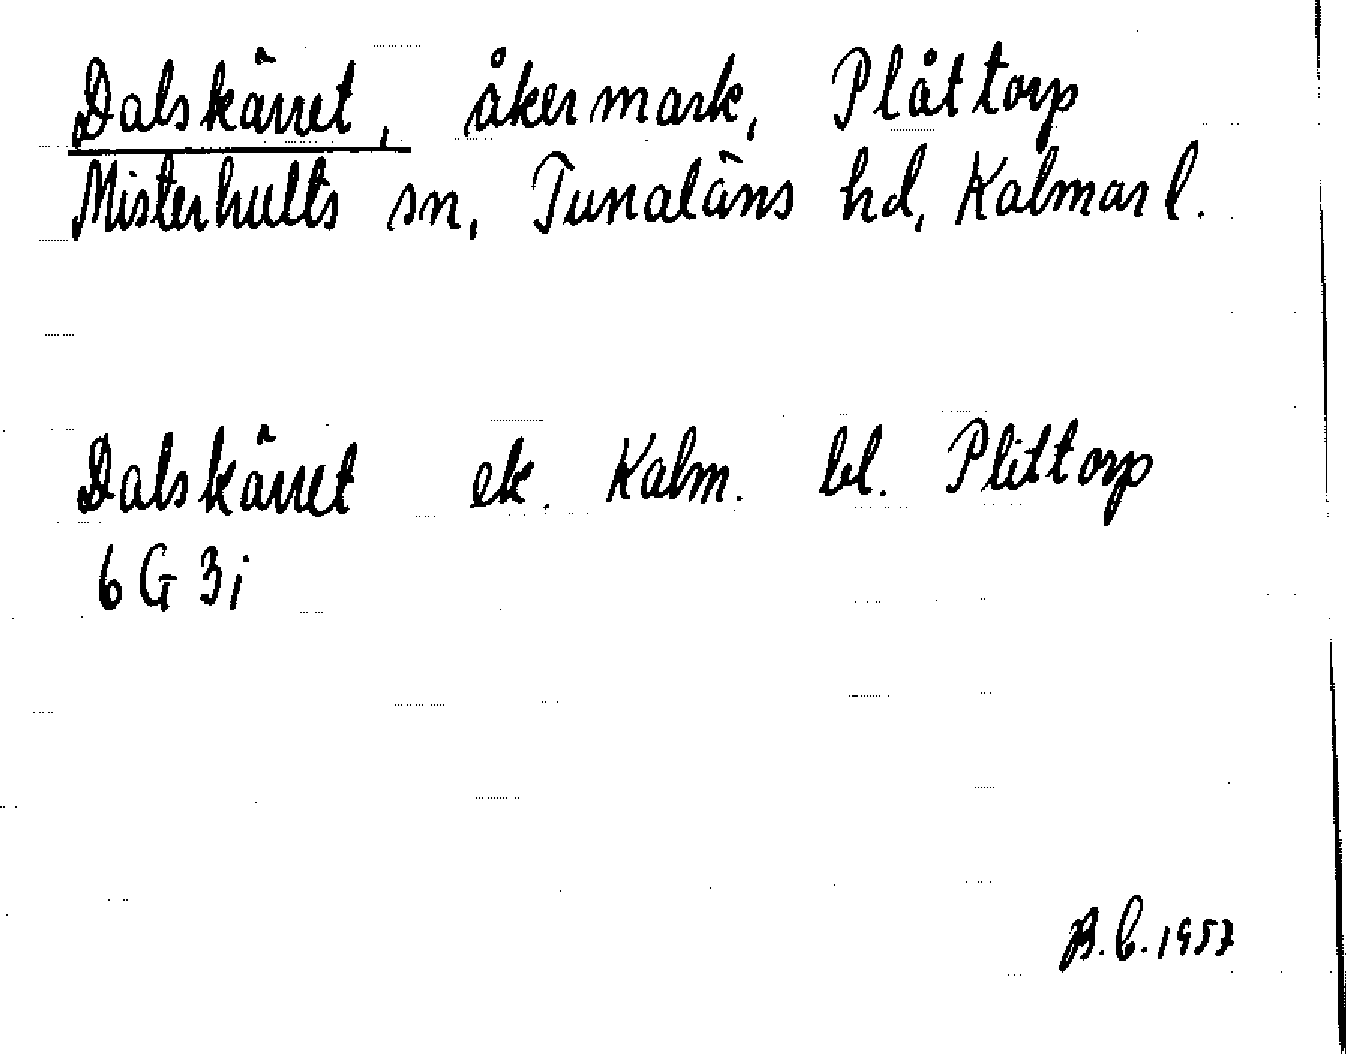 Dalskärret, åkermark, Plåttorp
Misterhults sn, Tunaläns hd, Kalmar l.
Dalskärret ek. Kalm. bl. Plittorp
6 G 3i
B.C. 1957